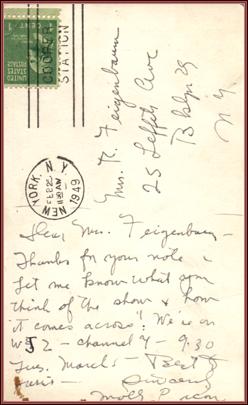 UNITED STATES
POSTAGE
1 CENT 1
COOPER
STATION
NEW YORK, N.Y.
FEB 25
11 30 AM
1949
Mrs. R. Feigenbaum
25 Lefferts Ave
Bklyn 25
N. Y.
Dear Mrs. Feigenbaum -
Thanks for your note &
let me know what you
think of the show & how
it comes across! We're on
WJZ - channel 7 - 9.30
Tues. March 1 - Best
Sincerely
Molly Picon.